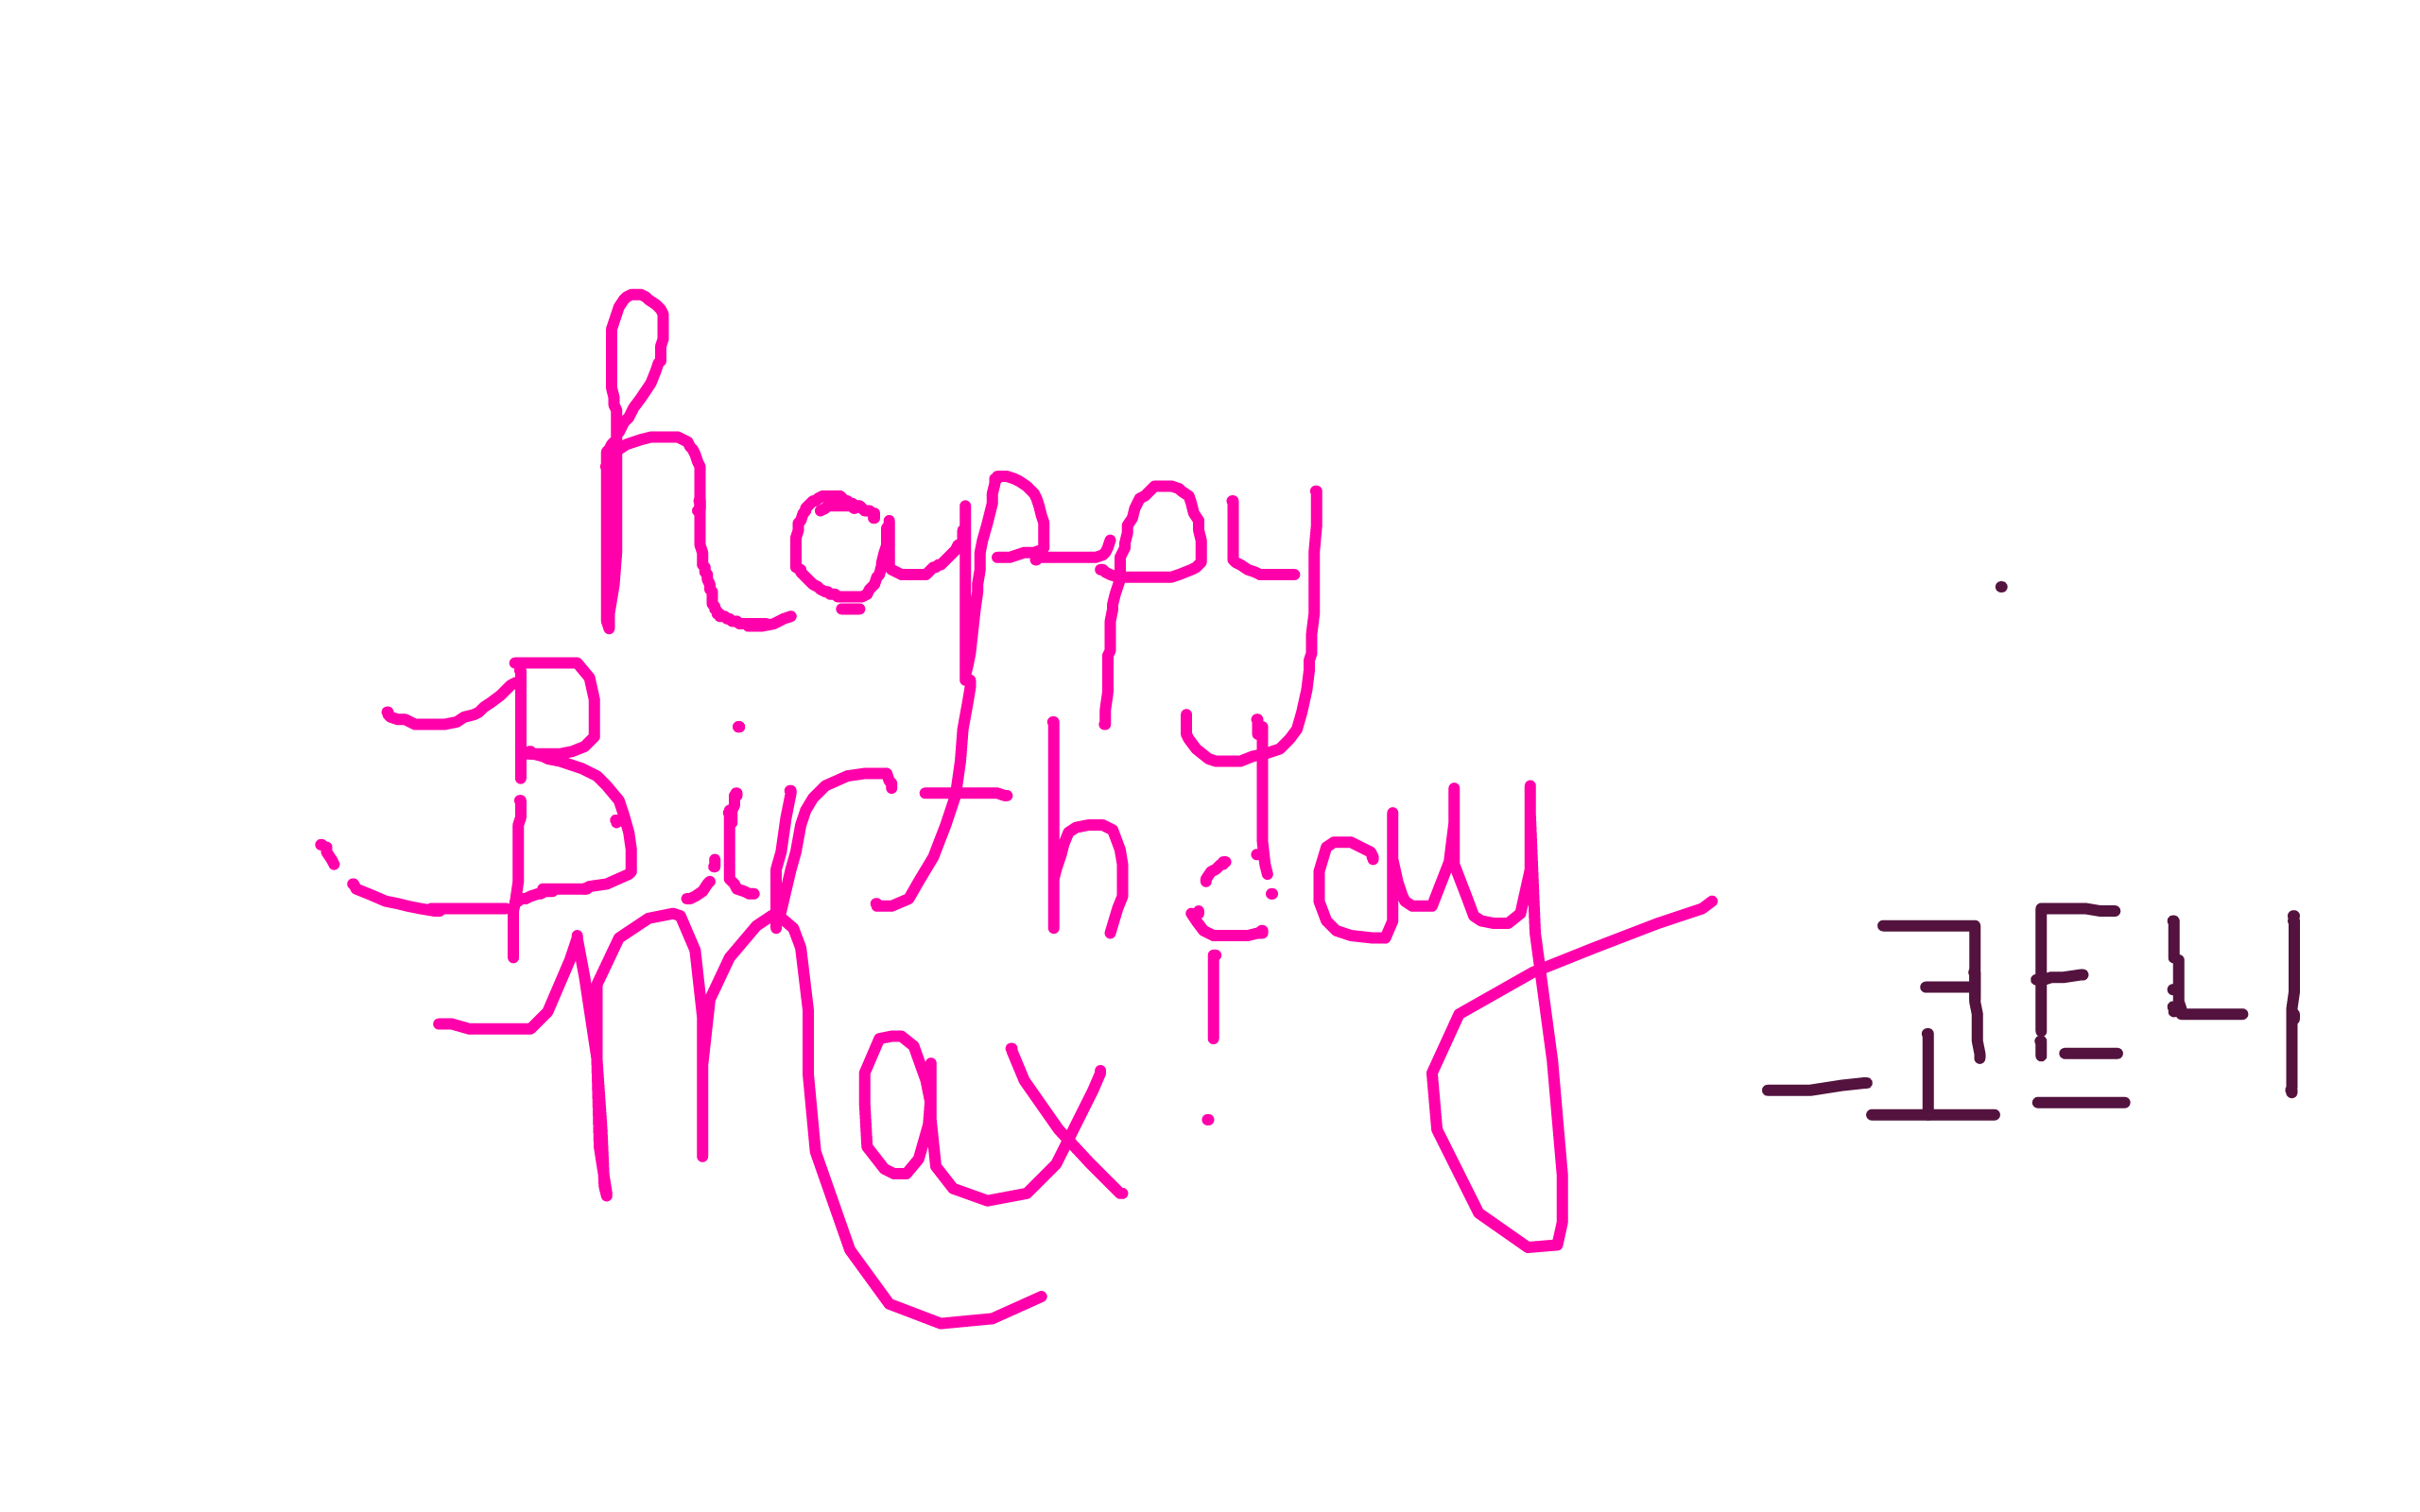 happy
Birthday
max!
-코트니